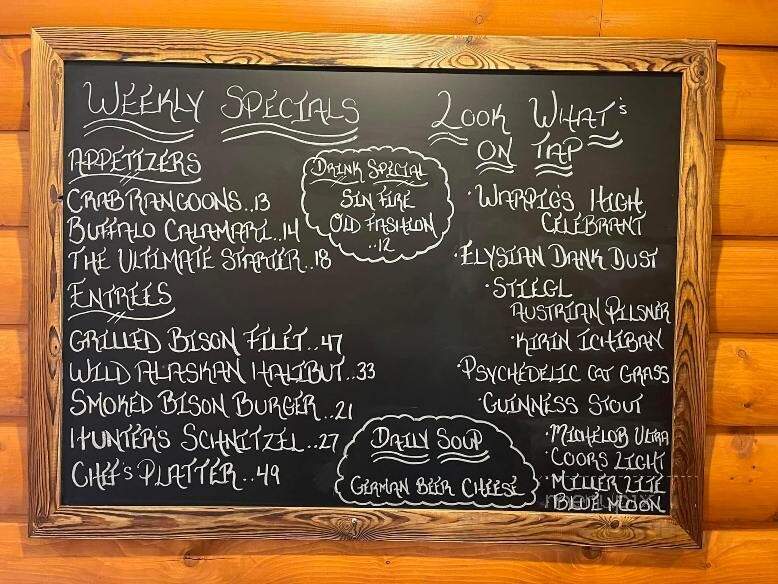 WEEKLY SPECIALS
APPETIZERS
CRAB RANGOONS..13
BUFFALO CALAMARI..14
THE ULTIMATE STARTER..18
ENTREES
GRILLED BISON FILET..47
WILD ALASKAN HALIBUT..33
SMOKED BISON BURGER..21
HUNTER'S SCHNITZEL..27
CHEF'S PLATTER..49
DRINK SPECIAL
SIN FIRE
OLD FASHION
..12
DAILY SOUP
GERMAN BEER CHEESE
LOOK WHAT'S
ON TAP
·WARPIGS HIGH
CELEBRANT
·ELYSIAN DANK DUST
·STIEGL
AUSTRIAN PILSNER
·KIRIN ICHIBAN
·PSYCHEDELIC CAT GRASS
·GUINNESS STOUT
·MICHELOB ULTRA
·COORS LIGHT
·MILLER LITE
BLUE MOON